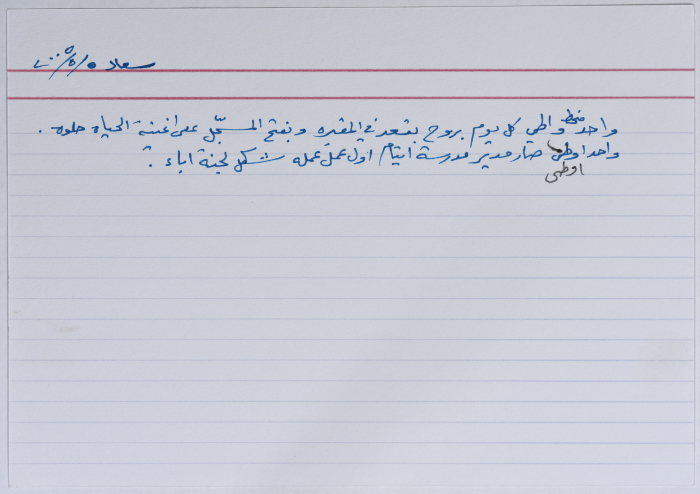 سعاد ٢٠٠٥/٥/٥
منحط
واحد واطي كل يوم بروح بقعد في المقبره وبفتح المسجّل على اغنية الحياة حلوه .
واحد اوطى صار مدير مدرسة ايتام اول عمل عمله شكل لجنة اباء .
اوطى